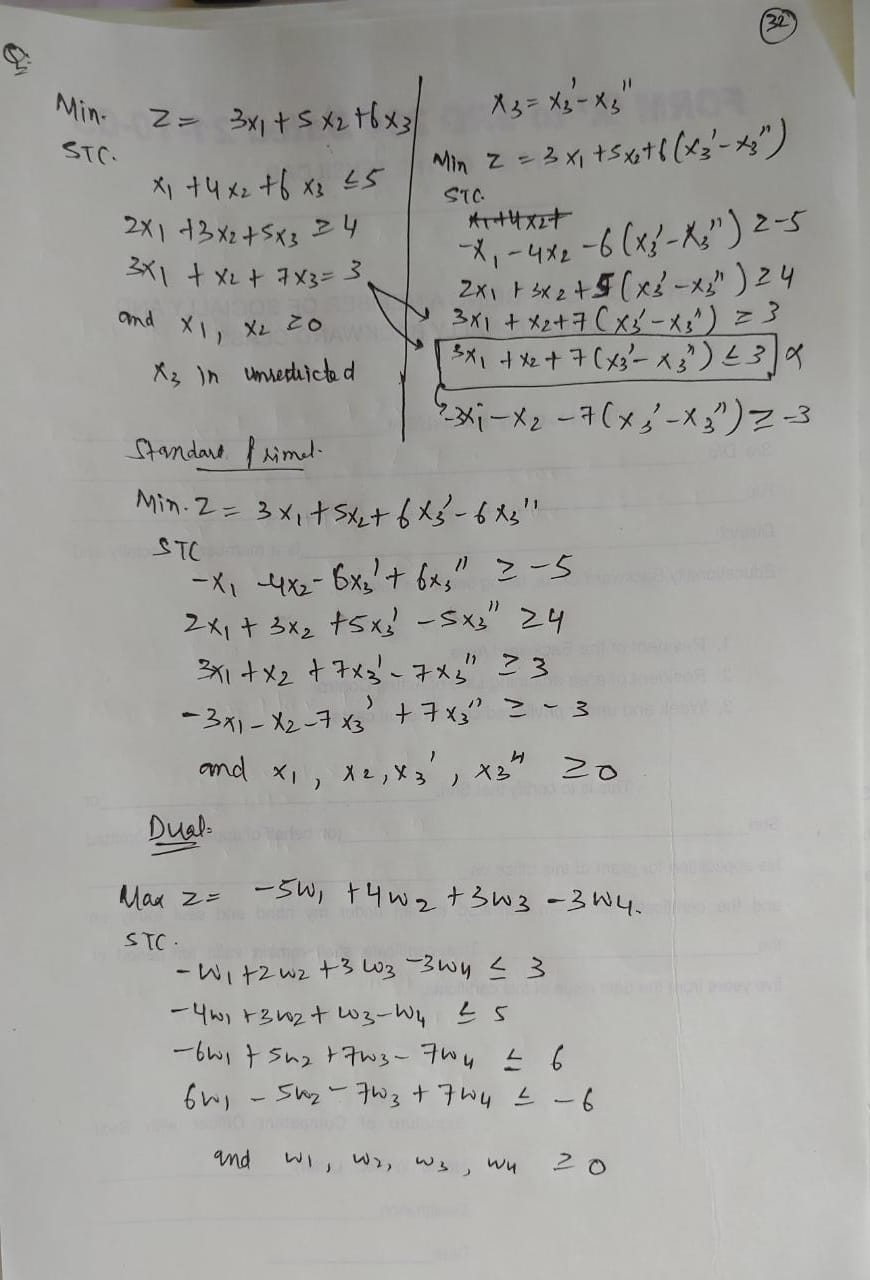 32
Q:
Min. Z = 3x₁ + 5x₂ + 6x₃
STC.
x₁ + 4x₂ + 6x₃ ≤ 5
2x₁ + 3x₂ + 5x₃ ≥ 4
3x₁ + x₂ + 7x₃ = 3
and x₁, x₂ ≥ 0
x₃ in unrestricted
x₃ = x₃' - x₃''
Min Z = 3x₁ + 5x₂ + 6(x₃' - x₃'')
STC.
x₁ + 4x₂ +
-x₁ - 4x₂ - 6(x₃' - x₃'') ≥ -5
2x₁ + 3x₂ + 5(x₃' - x₃'') ≥ 4
3x₁ + x₂ + 7(x₃' - x₃'') ≥ 3
3x₁ + x₂ + 7(x₃' - x₃'') ≤ 3
-3x₁ - x₂ - 7(x₃' - x₃'') ≥ -3
Standard Primal-
Min. Z = 3x₁ + 5x₂ + 6x₃' - 6x₃''
STC
-x₁ - 4x₂ - 6x₃' + 6x₃'' ≥ -5
2x₁ + 3x₂ + 5x₃' - 5x₃'' ≥ 4
3x₁ + x₂ + 7x₃' - 7x₃'' ≥ 3
-3x₁ - x₂ - 7x₃' + 7x₃'' ≥ -3
and x₁, x₂, x₃', x₃'' ≥ 0
Dual:
Max Z = -5w₁ + 4w₂ + 3w₃ - 3w₄.
STC.
-w₁ + 2w₂ + 3w₃ - 3w₄ ≤ 3
-4w₁ + 3w₂ + w₃ - w₄ ≤ 5
-6w₁ + 5w₂ + 7w₃ - 7w₄ ≤ 6
6w₁ - 5w₂ - 7w₃ + 7w₄ ≤ -6
and w₁, w₂, w₃, w₄ ≥ 0